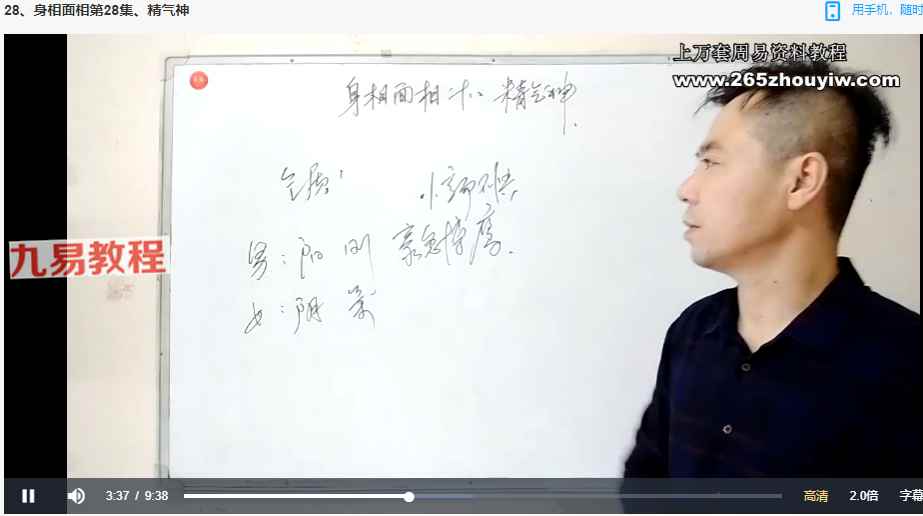 28、身相面相第28集、精气神
用手机，随时
上万套周易资料教程
www.265zhouyiw.com
身相面相十：精气神
气质
男：阳刚
女：阴柔
九易教程
3:37 / 9:38
高清
2.0倍
字幕